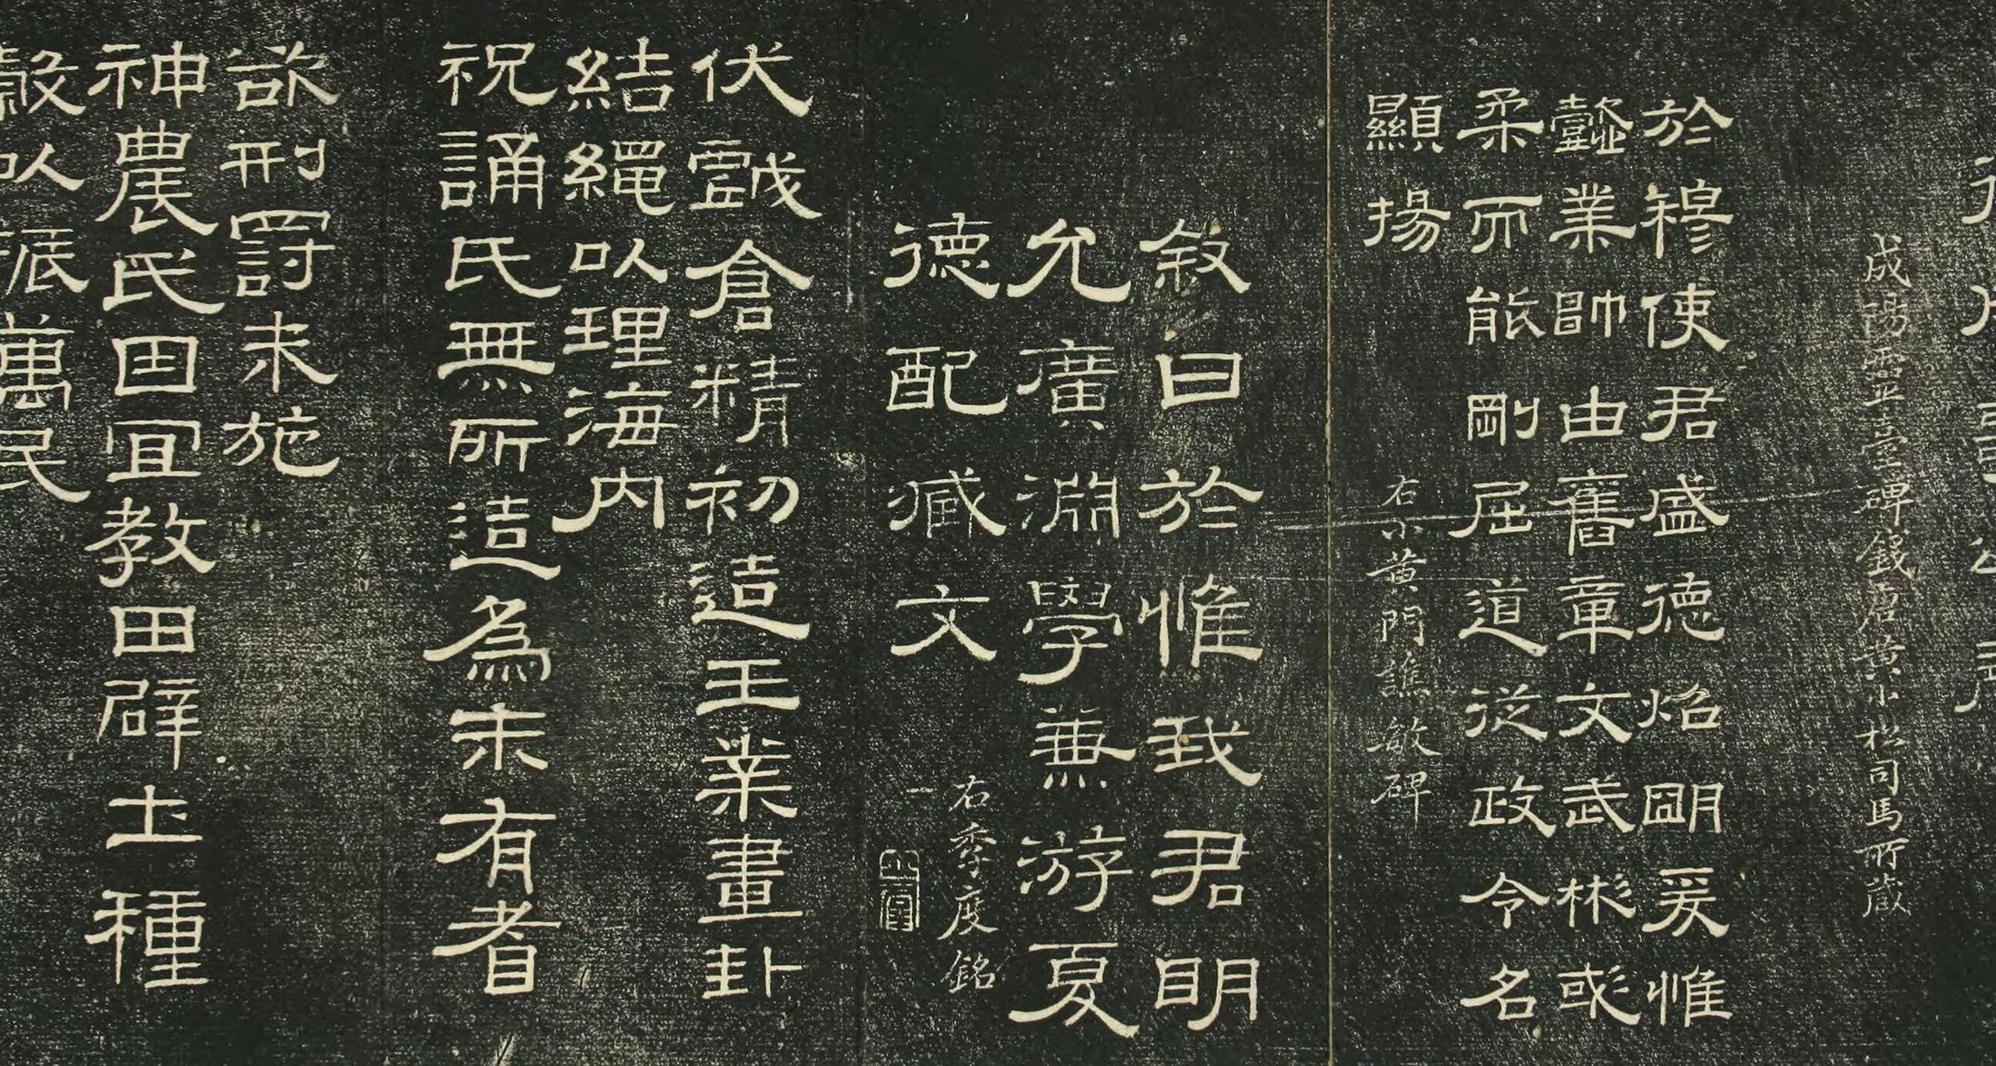 成陽靈臺碑錢唐黃小松司馬所藏
於穆使君盛德焰朙爰惟
懿業帥由舊章文武彬彧
柔而能剛屈道從政令名
顯揚
右小黃門譙敏碑
敘曰於惟我君明
允廣淵學兼游夏
德配臧文
右季度銘
伏戲倉精初造王業畫卦
結繩以理海内
祝誦氏無所造為未有耆
欲刑罰未施
神農氏田宜教田辟土種
穀以振萬民